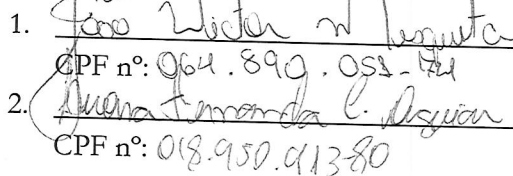 1. João Victor N Mesquita
CPF nº: 064.890.051-74
2. Fernanda C. Aguiar
CPF nº: 018.950.913-80